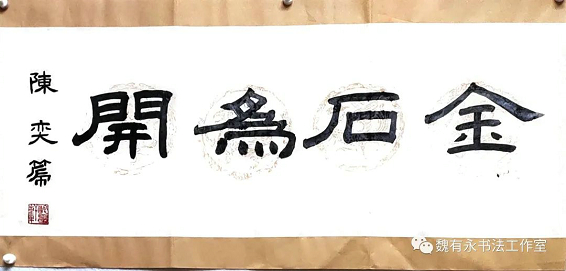 金石為開
陳奕篪
魏有永书法工作室